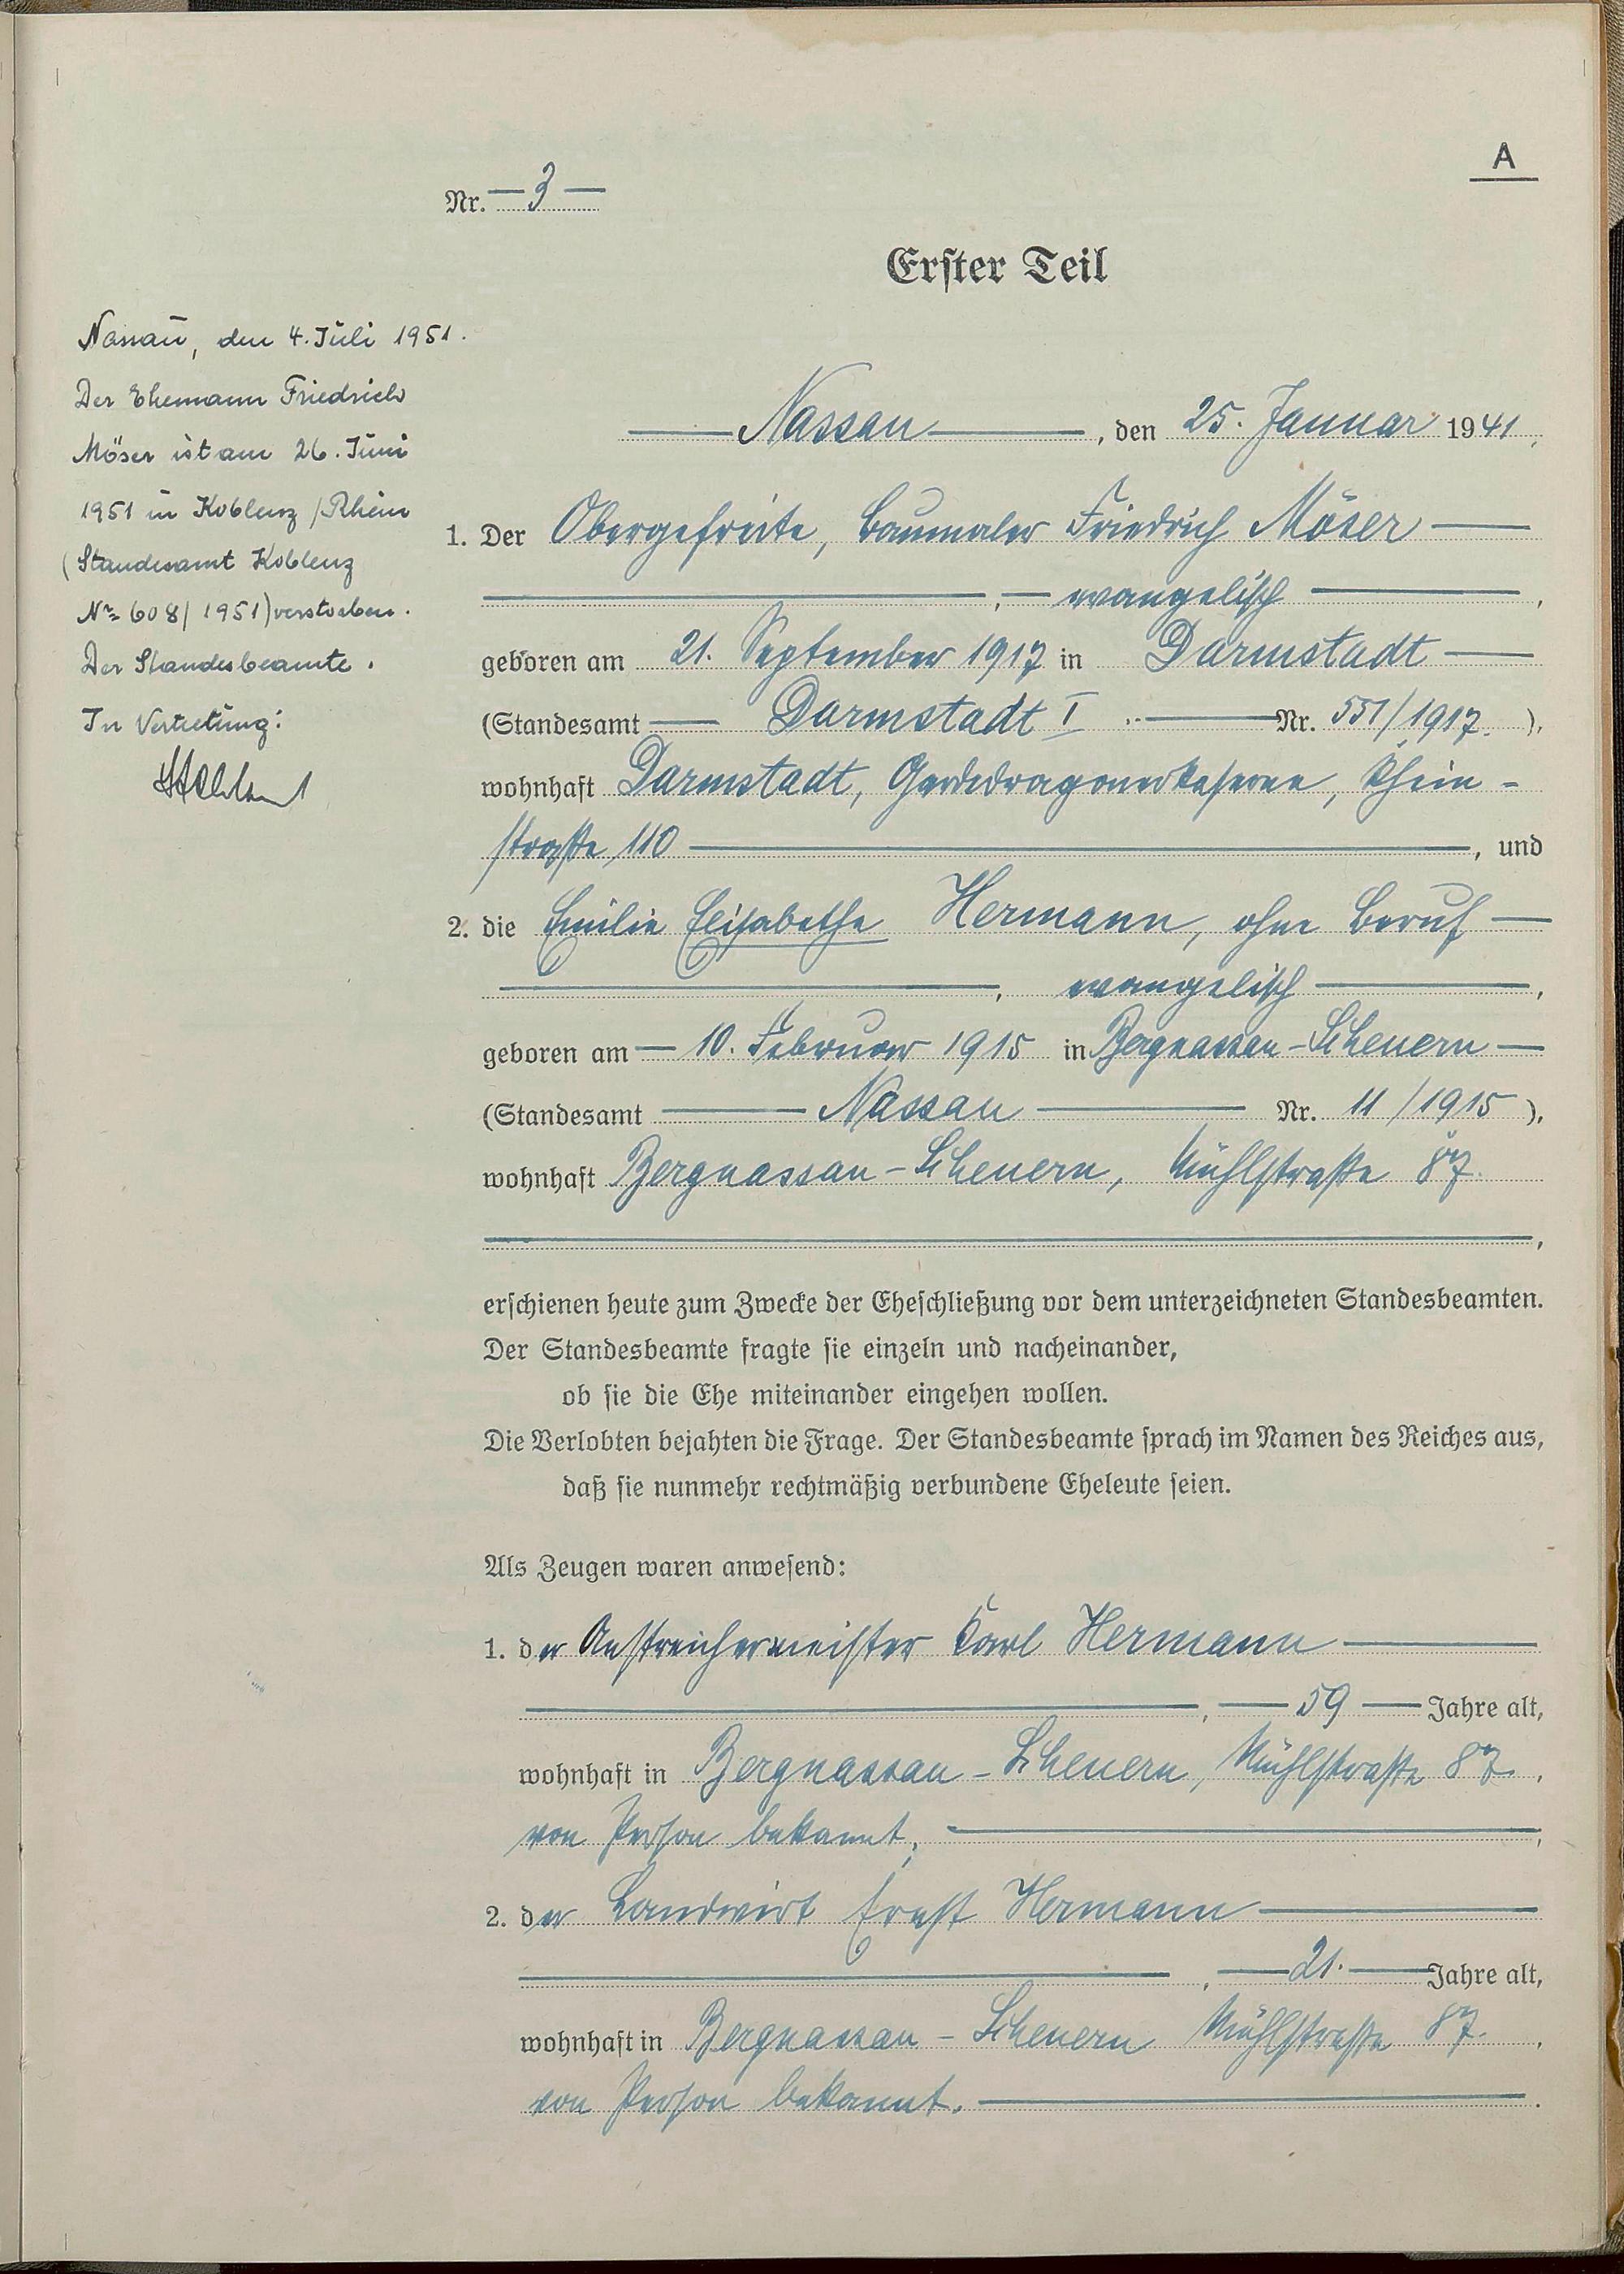 A
Nr. — 3 —
Erster Teil
Nassau, den 4. Juli 1951.
Der Ehemann Friedrich
Möser ist am 26. Juni
1951 in Koblenz/Rhein
(Standesamt Koblenz
Nr. 608/1951) verstorben.
Der Standesbeamte.
In Vertretung:
Nassau, den 25. Januar 1941,
1. Der Obergefreite, Baumaler Friedrich Möser
, evangelisch,
geboren am 21. September 1917 in Darmstadt
(Standesamt Darmstadt I Nr. 551/1917.),
wohnhaft Darmstadt, Gardedragonerkaserne, Rhein-
straße 110, und
2. die Emilie Elisabethe Hermann, ohne Beruf
, evangelisch,
geboren am 10. Februar 1915 in Bergnassau-Scheuern
(Standesamt Nassau Nr. 11/1915),
wohnhaft Bergnassau-Scheuern, Mühlstraße 87.
,
erschienen heute zum Zwecke der Eheschließung vor dem unterzeichneten Standesbeamten.
Der Standesbeamte fragte sie einzeln und nacheinander,
ob sie die Ehe miteinander eingehen wollen.
Die Verlobten bejahten die Frage. Der Standesbeamte sprach im Namen des Reiches aus,
daß sie nunmehr rechtmäßig verbundene Eheleute seien.
Als Zeugen waren anwesend:
1. der Anstreichermeister Karl Hermann
, 59 Jahre alt,
wohnhaft in Bergnassau-Scheuern, Mühlstraße 87.,
von Person bekannt,;
2. der Landwirt Ernst Hermann
, 21. Jahre alt,
wohnhaft in Bergnassau-Scheuern Mühlstraße 87.,
von Person bekannt.